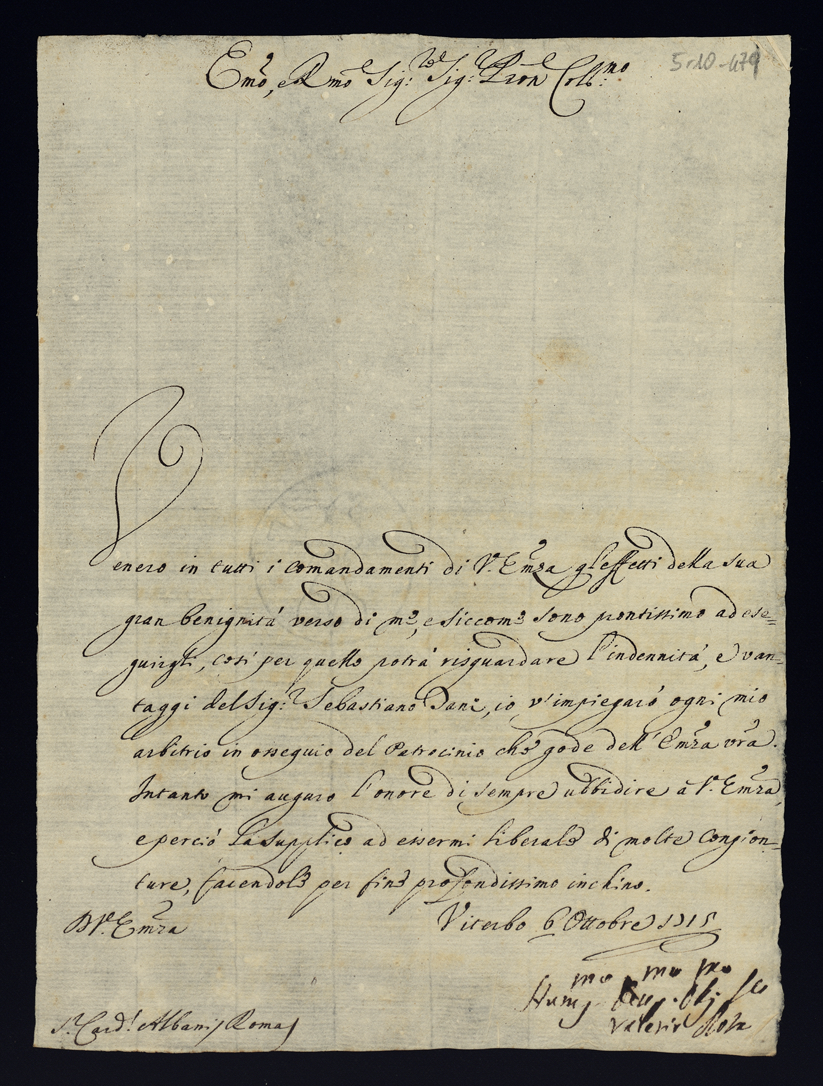 Emo, e Rmo Sig:r Sig: Pron Coll:mo
5-10-479
Venero in tutti i comandamenti di V. Emza gl'effetti della sua
gran benignitá verso di me, e siccome sono prontissimo ad ese=
guirgli, cosí per quello potrá risguardare l'indennitá, e van=
taggi del Sig:r Sebastiano Dani, io v'impiegaró ogni mio
arbitrio in ossequio del Patrocinio che gode dell'Emza vra.
Intanto mi auguro l'onore di sempre ubbidire á V. Emza,
e perció La supplico ad essermi liberale di molte congion=
ture, facendole per fine profondissimo inchino.
D V. Emza
Viterbo 6 Ottobre 1715
Hum:mo
S.r Card:l Albani / Roma /
Valerio Rota